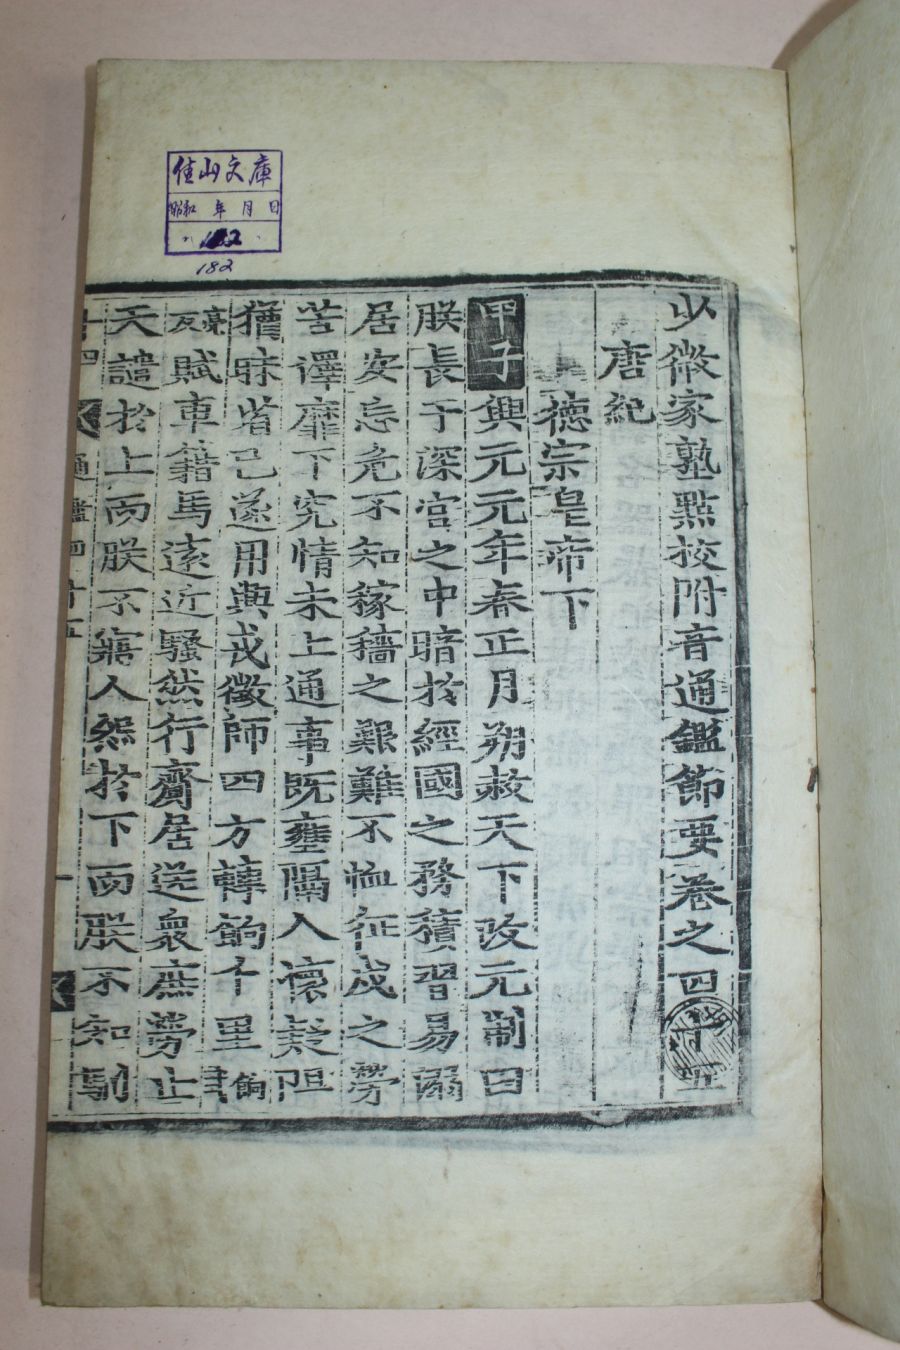 佳山文庫
昭和 年 月 日
182
182
少微家塾點校附音通鑑節要卷之四十五
唐紀
德宗皇帝下
甲子興元元年春正月朔赦天下改元制曰
朕長于深宮之中暗於經國之務積習易溺
居安忘危不知稼穡之艱難不恤征戍之勞
苦澤靡下究情未上通事旣壅隔人懷疑阻
猶昧省己遂用興戎徵師四方轉餉千里餉
賦車籍馬遠近騷然行齎居送衆庶勞止
天譴於上而朕不寤人怨於下而朕不知馴
通鑑四十五